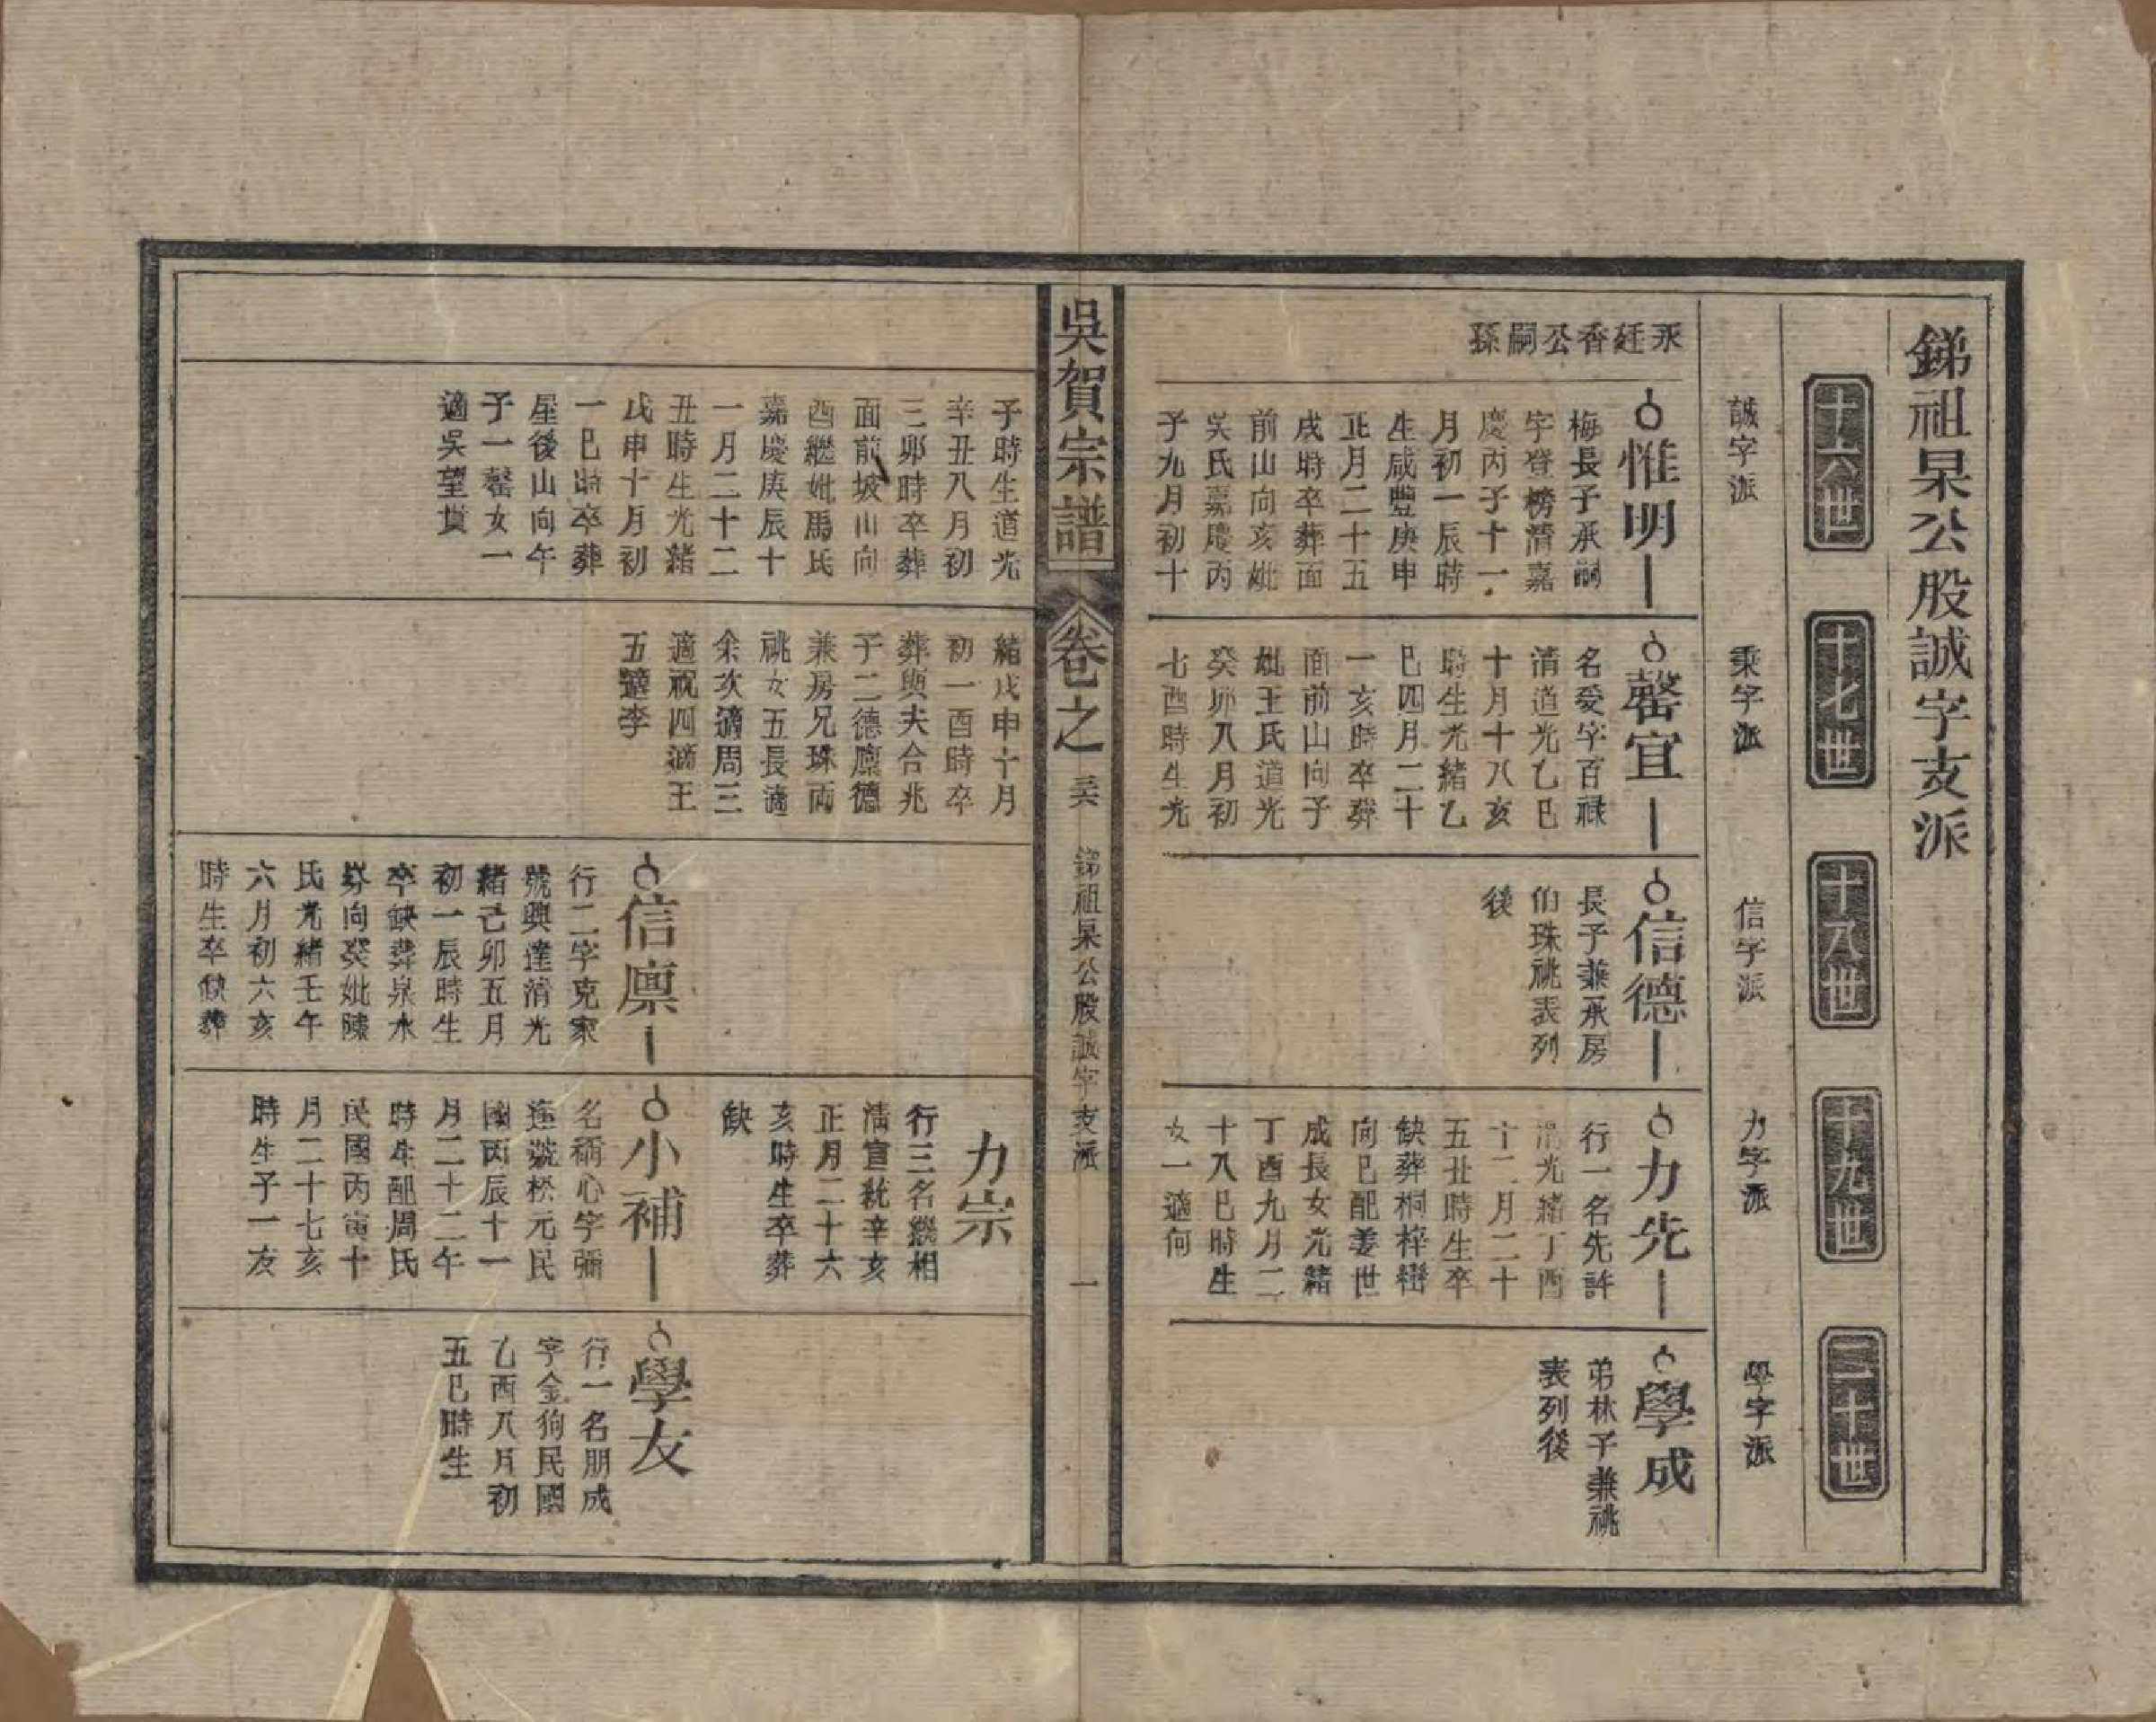 銻祖杲公股誠字支派
十六世
十七世
十八世
十九世
二十世
誠字派
秉字派
信字派
力字派
學字派
永廷香公嗣孫
惟明
梅長子承嗣
字登榜清嘉
慶丙子十一
月初一辰時
生咸豐庚申
正月二十五
戌時卒葬面
前山向亥妣
吳氏嘉慶丙
子九月初十
罄宜
名受字百祿
清道光乙巳
十月十八亥
時生光緒乙
巳四月二十
一亥時卒葬
面前山向子
妣王氏道光
癸卯八月初
七酉時生光
信德
長子兼承房
伯珠祧表列
後
力先
行一名先許
清光緒丁酉
十二月二十
五丑時生卒
缺葬桐梓巒
向巳配姜世
成長女光緒
丁酉九月二
十八巳時生
女一適何
學成
弟林子兼祧
表列後
吳賀宗譜
卷之
銻祖杲公股誠字支派
一
子時生道光
辛丑八月初
三卯時卒葬
面前坡山向
酉繼妣馬氏
嘉慶庚辰十
一月二十二
丑時生光緒
戊申十月初
一巳時卒葬
屋後山向午
子一罄女一
適吳望貴
緒戊申十月
初一酉時卒
葬與夫合兆
子二德廩德
兼房兄珠両
祧女五長適
余次適周三
適祝四適王
五適李
信廩
行二字克家
號興達清光
緒己卯五月
初一辰時生
卒缺葬泉水
券向癸妣陳
氏光緒壬午
六月初六亥
時生卒缺葬
力崇
行三名繼相
清宣統辛亥
正月二十六
亥時生卒葬
缺
小補
名稱心字彌
連號松元民
國丙辰十一
月二十二午
時生配周氏
民國丙寅十
月二十七亥
時生子一友
學友
行一名朋成
字金狗民國
乙酉八月初
五巳時生